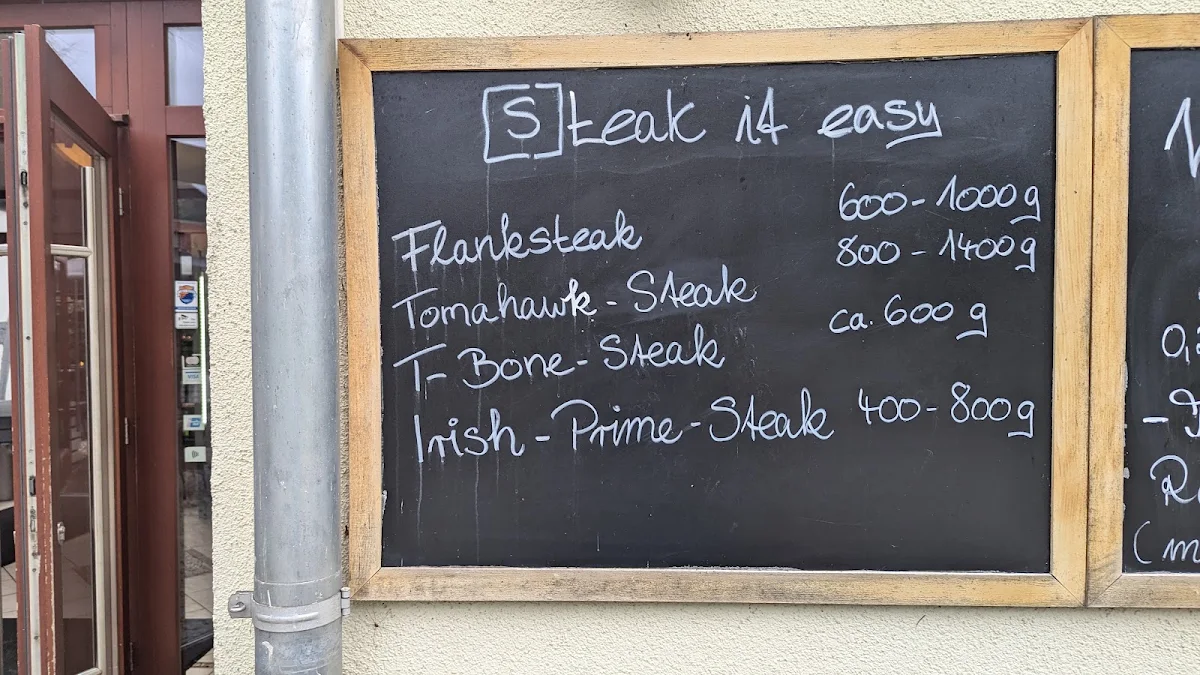 Steak it easy
Flanksteak 600-1000g
Tomahawk-Steak 800-1400g
T-Bone-Steak ca. 600 g
Irish-Prime-Steak 400-800g
0,
(m